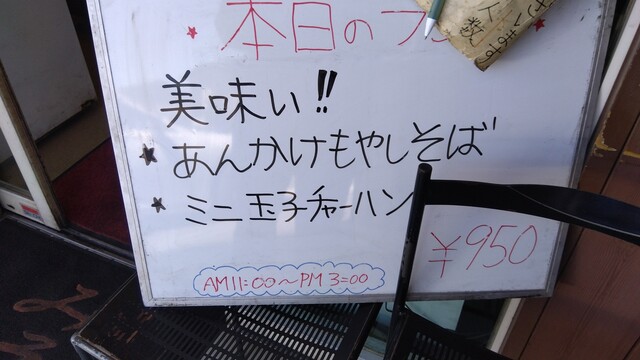 本日の
美味い!!
★あんかけもやしそば
★ミニ玉子チャーハン
¥950
AM11:00〜PM3:00
人数